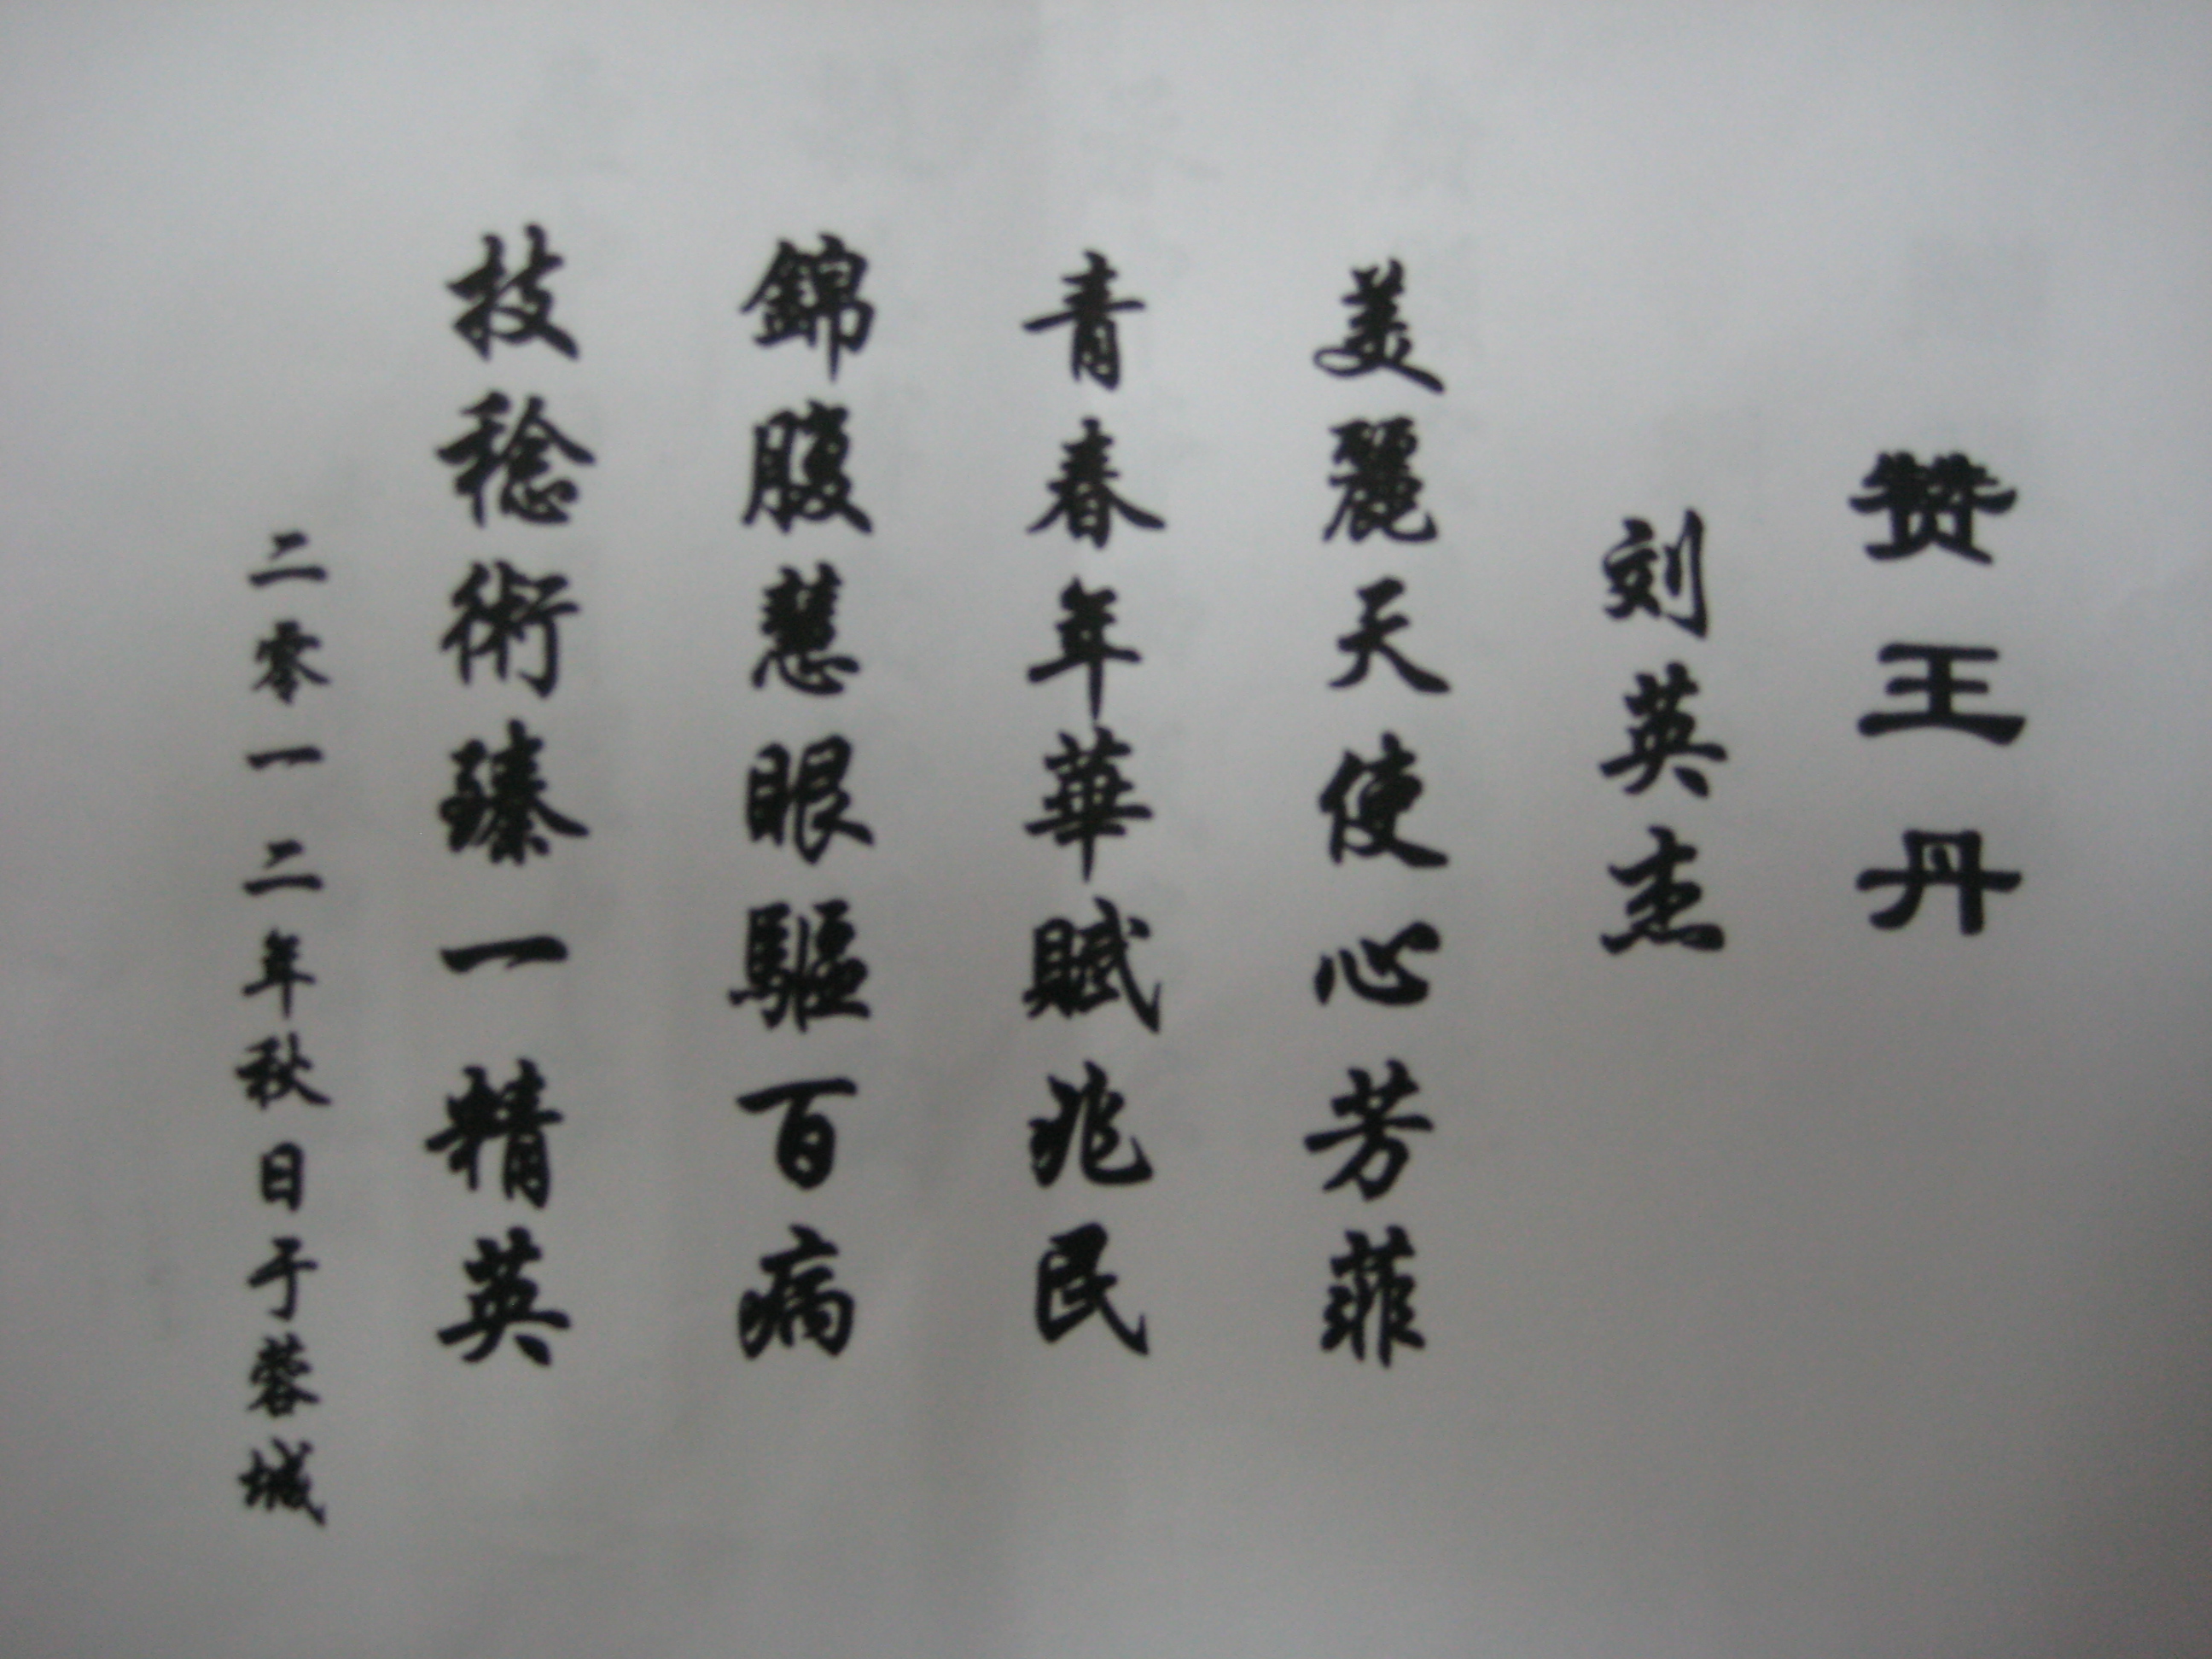 赞王丹
刘英杰
美麗天使心芳菲
青春年華賦兆民
錦腹慧眼驅百病
技稔術臻一精英
二零一二年秋日于蓉城